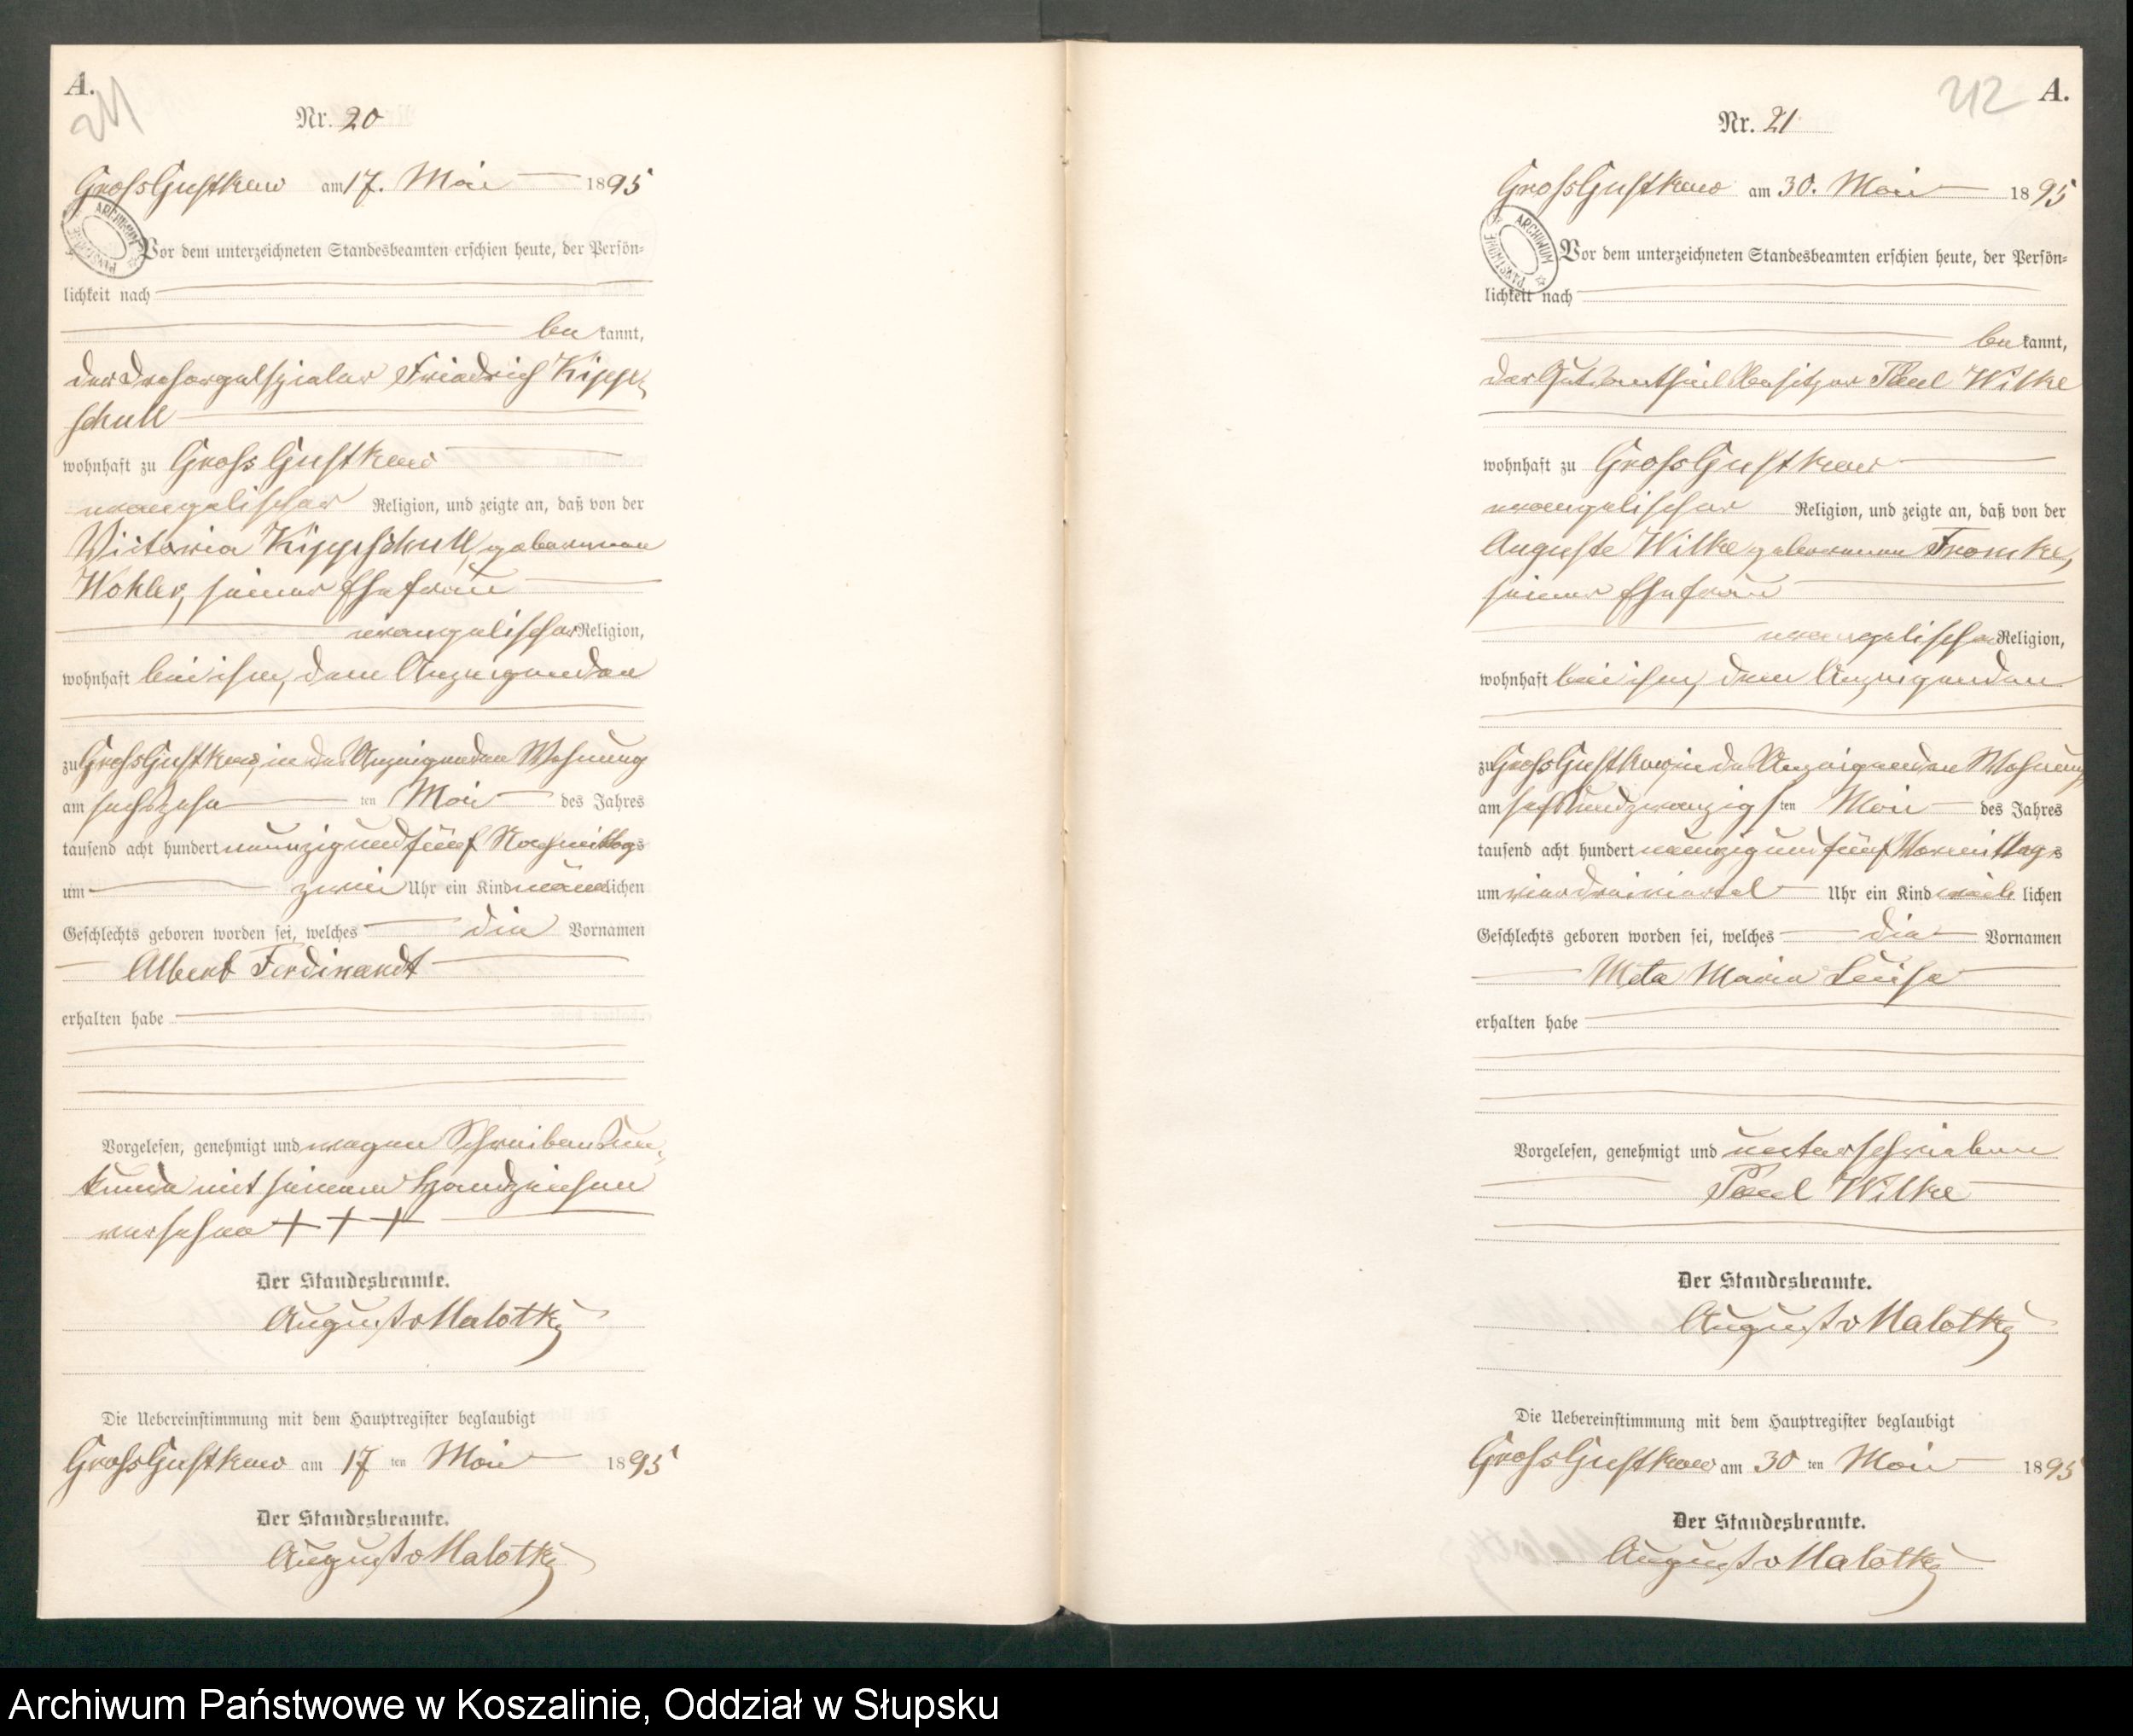 A.
211
Nr. 20
Gross Gustkow am 17. Mai 1895
ARCHIWUM PAŃSTWOWE
Vor dem unterzeichneten Standesbeamten erschien heute, der Persön-
lichkeit nach
be kannt,
der Drehorgelspieler Friedrich Kipp-
schull
wohnhaft zu Gross Gustkow
evangelischer Religion, und zeigte an, daß von der
Victoria Kippschull, geborenen
Wohler, seiner Ehefrau
evangelischer Religion,
wohnhaft bei ihm, dem Anzeigenden
zu Gross Gustkow, in des Anzeigenden Wohnung
am sechszehn ten Mai des Jahres
tausend acht hundert neunzig und fünf Nachmittags
um zwei Uhr ein Kind männlichen
Geschlechts geboren worden sei, welches die Vornamen
Albert Ferdinandt
erhalten habe
Vorgelesen, genehmigt und wegen Schreibensun-
kunde mit seinem Handzeichen
versehen + + +
Der Standesbeamte.
August v Malottky
Die Uebereinstimmung mit dem Hauptregister beglaubigt
Gross Gustkow am 17 ten Mai 1895
Der Standesbeamte.
August v Malottky
212 A.
Nr. 21
Gross Gustkow am 30. Mai 1895
ARCHIWUM PAŃSTWOWE
Vor dem unterzeichneten Standesbeamten erschien heute, der Persön-
lichkeit nach
be kannt,
der Gutsantheil Besitzer Paul Wilke
wohnhaft zu Gross Gustkow
evangelischer Religion, und zeigte an, daß von der
Auguste Wilke geborenen Fromke,
seiner Ehefrau
evangelischer Religion,
wohnhaft bei ihm, dem Anzeigenden
zu Gross Gustkow in des Anzeigenden Wohnung
am sechsundzwanzigs ten Mai des Jahres
tausend acht hundert neunzig und fünf Vormittags
um vier dreiviertel Uhr ein Kind weib lichen
Geschlechts geboren worden sei, welches die Vornamen
Meta Maria Luise
erhalten habe
Vorgelesen, genehmigt und unterschrieben
Paul Wilke
Der Standesbeamte.
August v Malottky
Die Uebereinstimmung mit dem Hauptregister beglaubigt
Gross Gustkow am 30 ten Mai 1895
Der Standesbeamte.
August v Malottky
Archiwum Państwowe w Koszalinie, Oddział w Słupsku